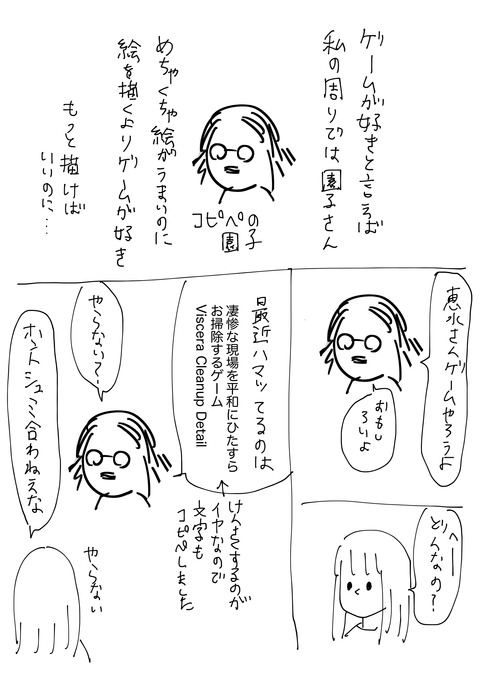 ゲームが好きと言えば
私の周りでは園子さん
コピペの
園子
めちゃくちゃ絵がうまいのに
絵を描くよりゲームが好き
もっと描けば
いいのに…
恵水さんゲームやろうよ
おもしろいよ
へー
どんなの?
最近ハマッてるのは
凄惨な現場を平和にひたすら
お掃除するゲーム
Viscera Cleanup Detail
けんさくするのが
イヤなので
文字も
コピペしました
やらない?
やらない
ホントシュミ合わねえな